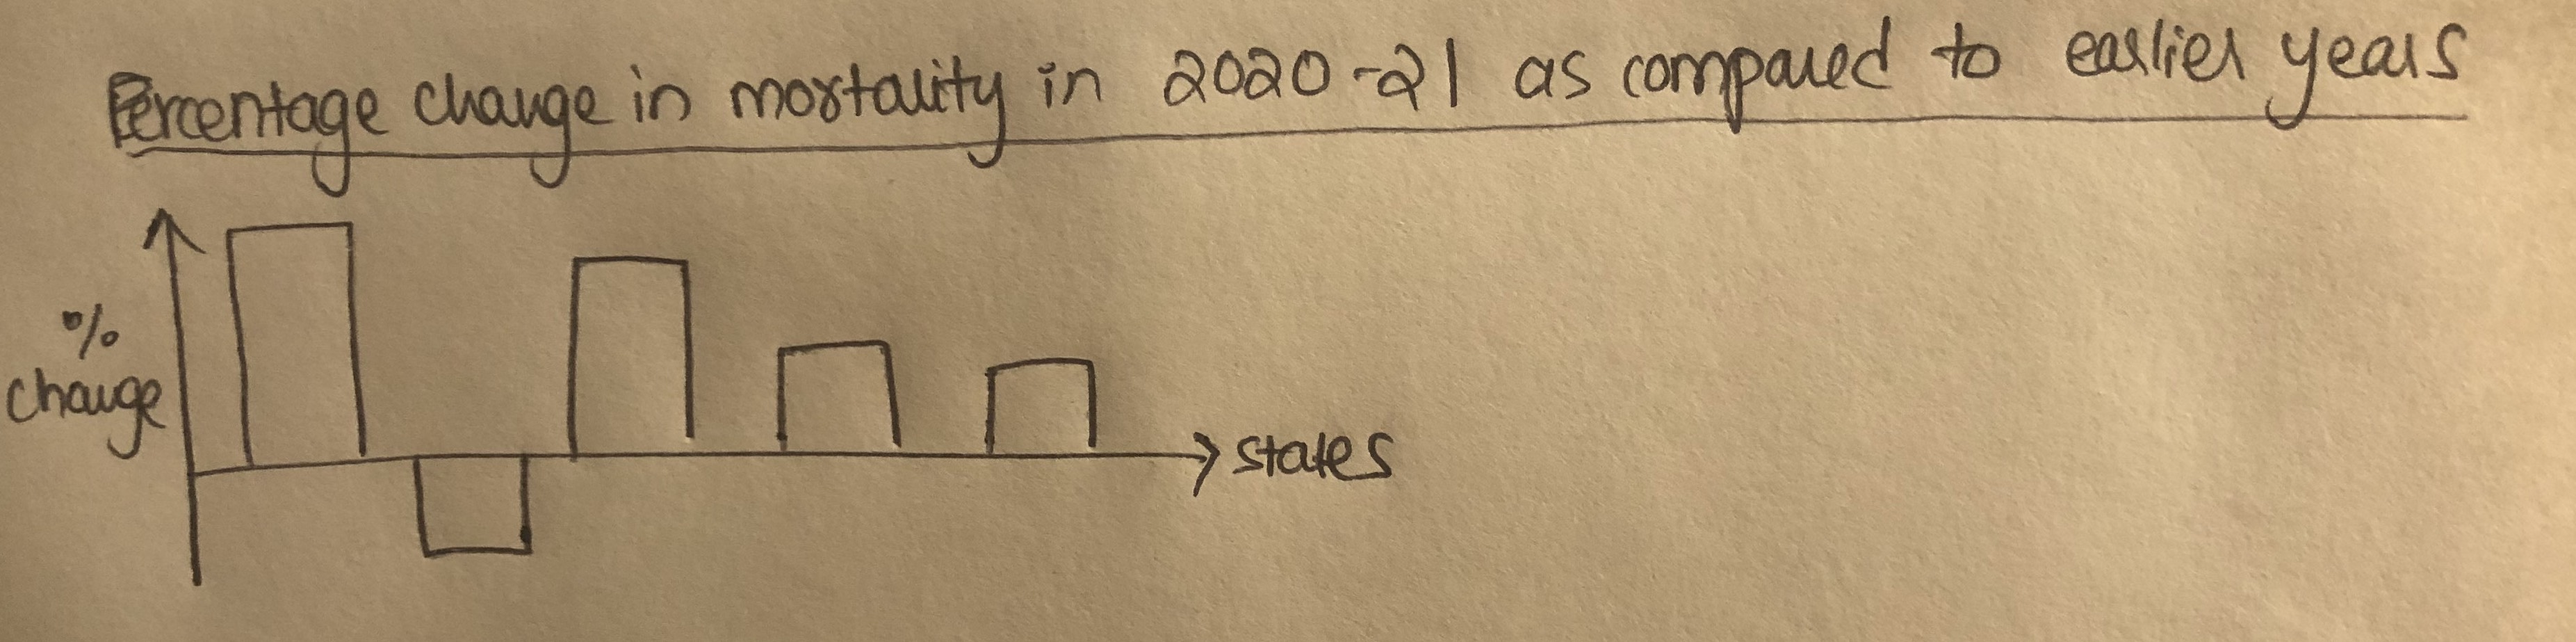 Percentage change in mortality in 2020-21 as compared to earlier years
%
change
states